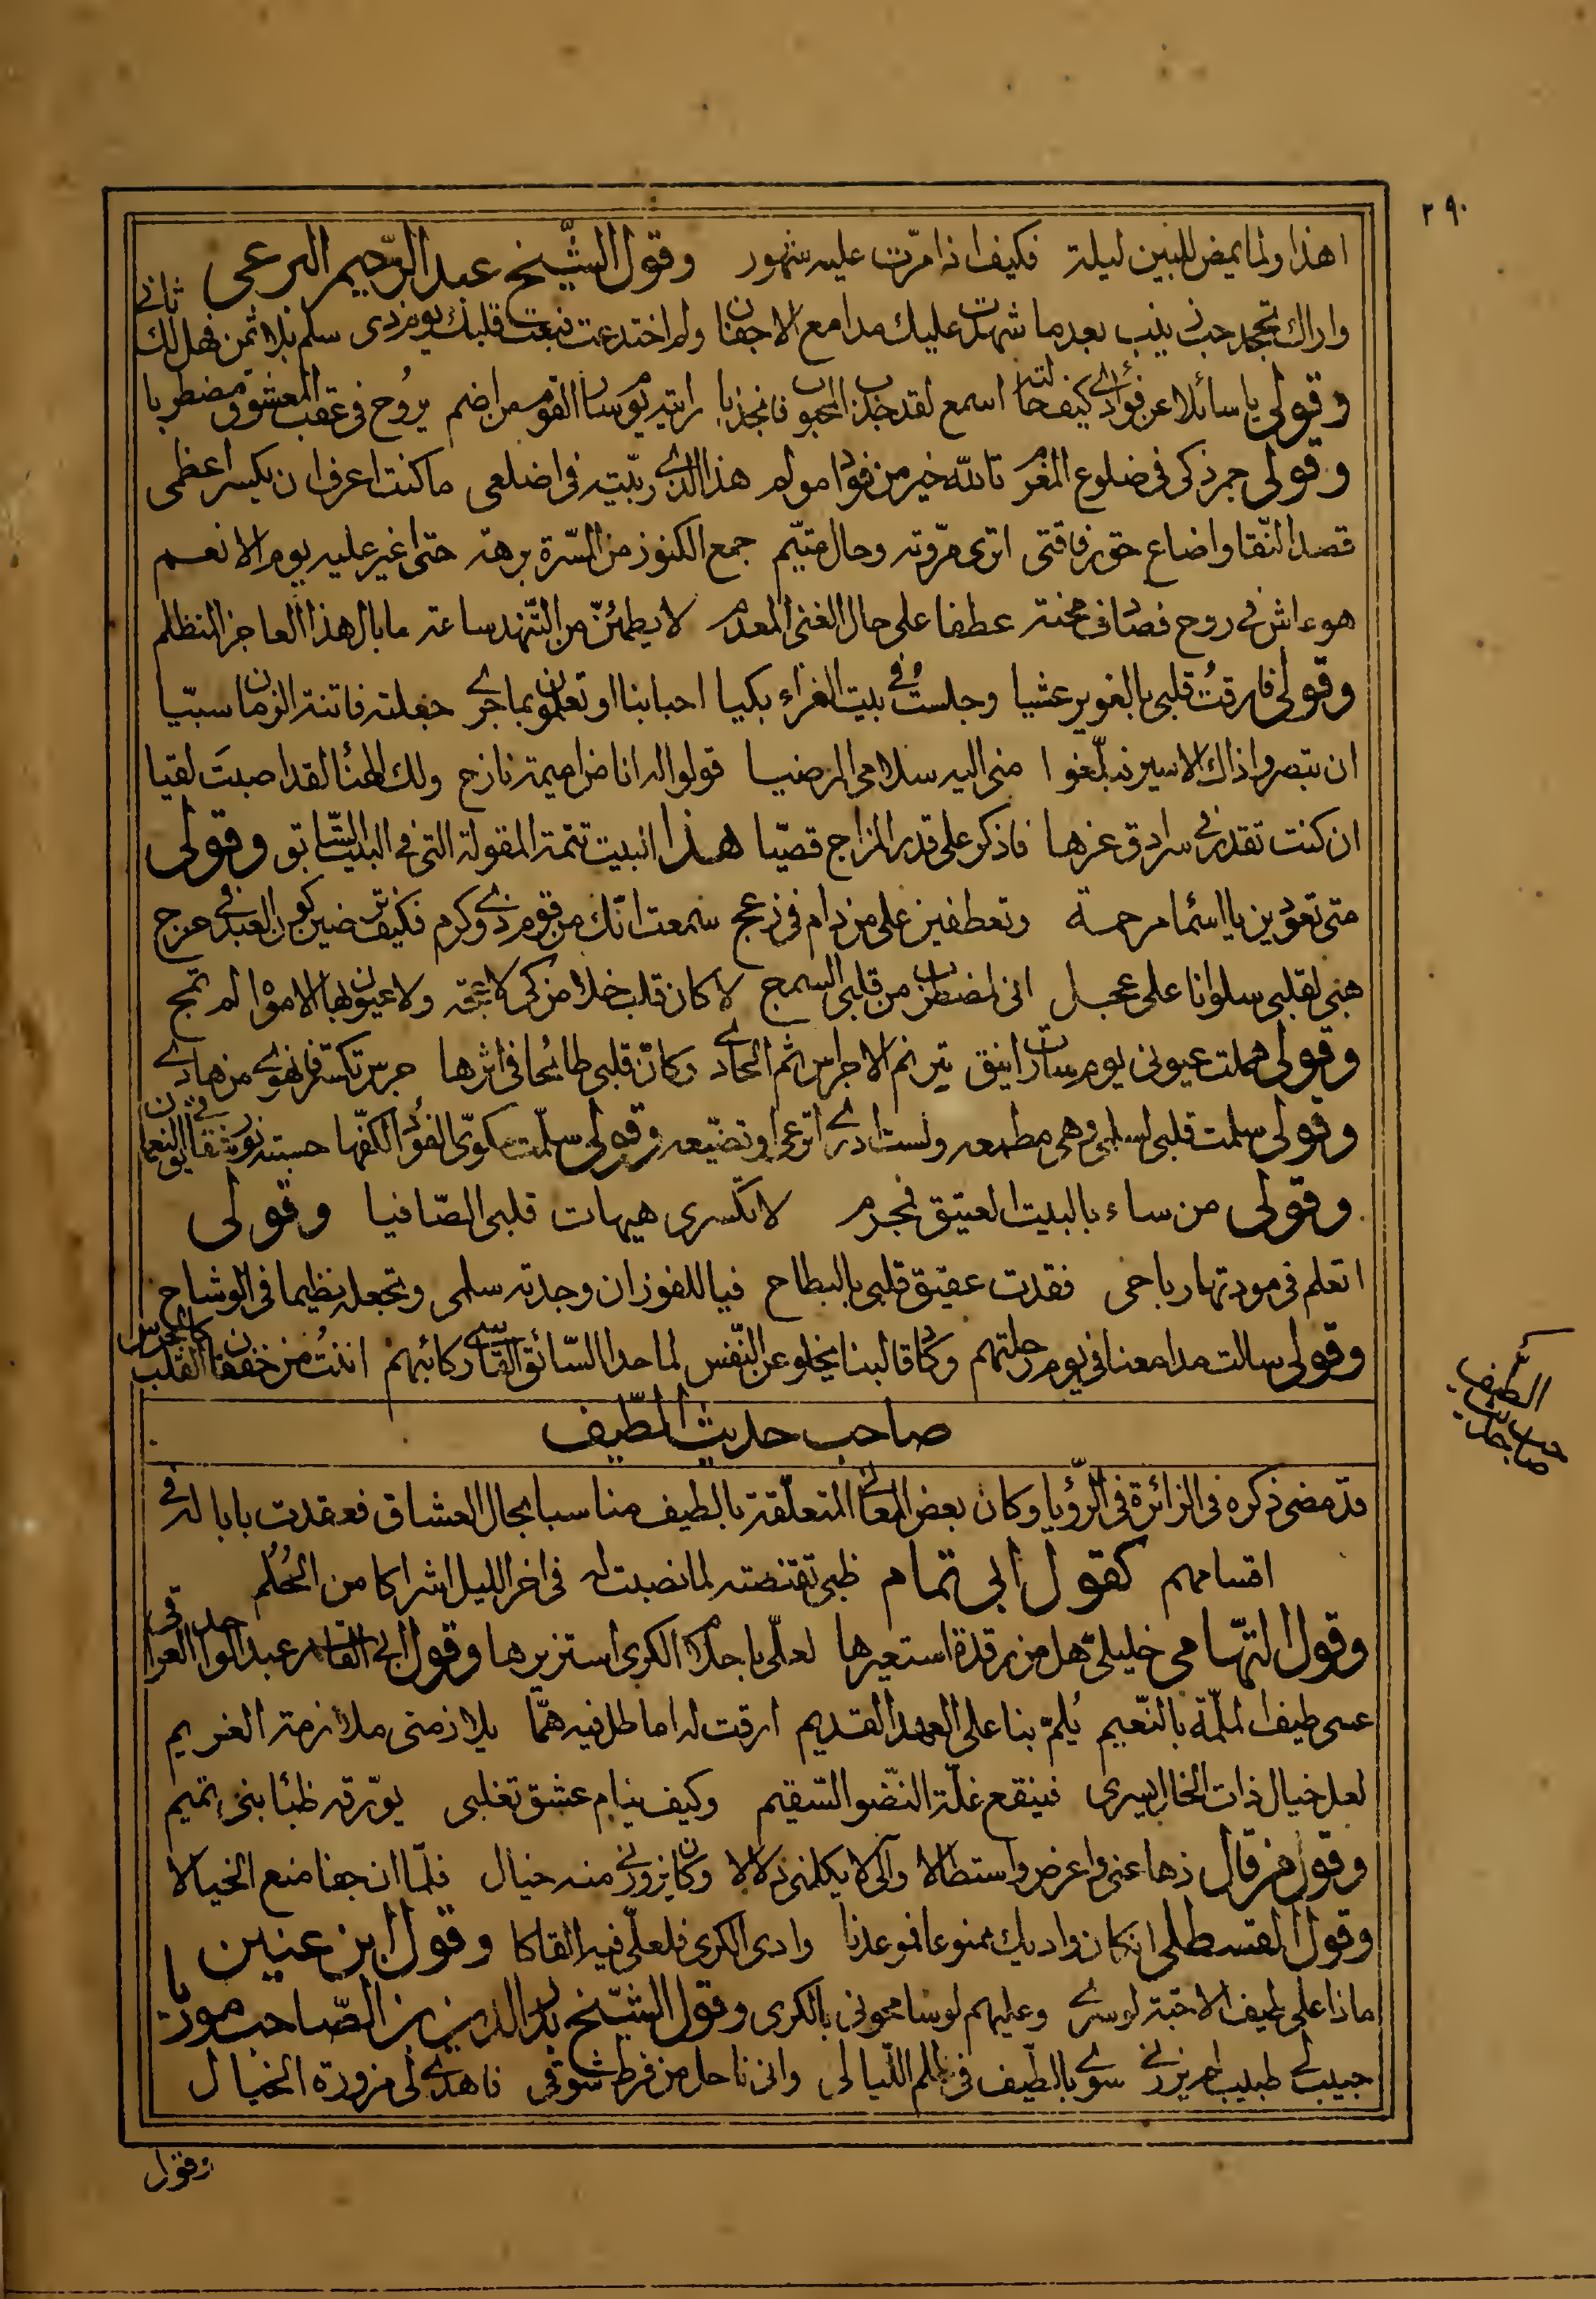 ٢٩٠
اهذا ولما يمض للبين ليلة فكيف اذا مرّت عليه شهور وقول الشّيخ عبد الرّحيم البرعى
واراك تجحد حب زينب بعدما شهدت عليك مدامع الاجفان ولم اختدعت فبعت قلبك يوم ذى سلم بلا ثمن فهل لك ثانى
وقولى يا سائلا عن فؤادى كيف حالته اسمع لقد جذب المحبوب فانجذبا رايته يوم سار القوم من اضم يروح فى عقب المعشوق مضطربا
وقولى جمر ذكى فى ضلوع المغرم تالله خير من فؤاد مولم هذا الذى ربّيته فى اضلعى ما كنت اعرف ان يكسر اعظمى
قصد النّقا واضاع حق رفاقتى اترى مروّته وحال متيّم جمع الكنوز من المسّرة برهة حتى اغير عليه يوم الانعم
هو عاش فى روح فصادف محنة عطفا على حال الغنى المعدم لا يطمئنّ من التّنهد ساعة ما بال هذا العاجز المتظلم
وقولى فارقتُ قلبى بالغوير عشيا وجلستُ فى بيت الغراء بكيا احبابنا او تعلمون بما جرى حفلته فاتنة الزمان سبيّا
ان تبصروا ذاك الاسير فبلّغوا منى اليه سلامى المرضيا قولوا له انا من اميمة نازح ولك الهنا لقد اصبت لقيا
ان كنت تقدر فى سرادق عزها فاذكر على قدر المزاج قصيّا هذا البيت تتمة المقولة التى فى البيت السّابق وقولى
متى تعودين يا اسما مرحمة وتعطفين على من دام فى زعج سمعت انّك من قوم ذوى كرم فكيف ترضين كون العبد فى حرج
هبى لقلبى سلوانا على عجل انى لمضطرب من قلبى السمج لا كان قلب خلا من ذكر كاعبة ولا عيون لها الامواه لم تمج
وقولى هملت عيونى يوم سارت اينق بترنم الاجراس ثم الحادى وكان قلبى طائحا فى اثرها جرس تكسر فهوى من هادى
وقولى سلمت قلبى لسلمى وهى مطمعه ولست ادرى اترعى او تضيّعه وقولى سلّمت مكوىّ الفؤاد لكفّها حسبته نور شقائق النعمان
وقولى من ساء بالبيت العتيق فمجرم لا تكسرى هيهات قلبى الصّافيا وقولى
اتعلم فى مودتها رباحى فقدت عقيق قلبى بالبطاح فيا للفوز ان وجدته سلمى وتجعله نظيما فى الوشاح
وقولى سالت مدامعنا فى يوم رحلتهم وكاد قالبنا يخلو عن النّفس لما حدا السّائق القاسى ركائبهم اننتُ من خفقان القلب كالجرس
صاحب حديث الطّيف
الطّيف
صاحب حديث
قد مضى ذكره فى الزائرة فى الرّؤيا وكان بعض المعانى المتعلّقة بالطيف مناسبا بحال العشاق فعقدت بابا له فى
اقسامهم كقول ابى تمام ظبى تقنصته لما نصبت له فى اخر الليل اشراكا من الحُلُم
وقول التّهامى خليلىّ هل من رقدة استعيرها لعلّى باحلام الكرى استزيرها وقول ابى القاسم عبد الواحد العراقى
عسى طيف الملمّة بالنّعيم يُلمّ بنا على العهد القديم ارقت له اماطل فيه همّا يلازمنى ملازمة الغريم
لعل خيال ذات الخال يسرى فينقع غلّة النّضو السّقيم وكيف ينام عشق تغلبى يورّقه ظبا بنى تميم
وقول من قال زها عنى واعرض واستطالا وآلى لا يكلمنى دلالا وكان يزورنى منه خيال فلمّا ان جفا منع الخيالا
وقول القسطلى ان كان واديك ممنوعا فموعدنا وادى الكرى فلعلّى فيه القاكا وقول ابن عنين
ماذا على طيف الاحبّة لو سرى وعليهم لو سامحونى بالكرى وقول الشيخ بدر الدين بن الصّاحب مورّيا
حبيب لى طبيب لم يزرنى سوى بالطّيف فى ظلم اللّيالى وانى ناحل من فرط شوقى فاهدى لى مزورة الخيال
وقول